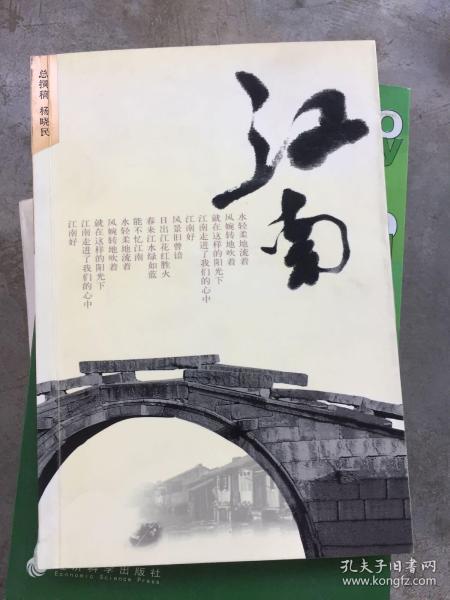 总撰稿 杨晓民
江南
水轻柔地流着
风婉转地吹着
就在这样的阳光下
江南走进了我们的心中
江南好
风景旧曾谙
日出江花红胜火
春来江水绿如蓝
能不忆江南
水轻柔地流着
风婉转地吹着
就在这样的阳光下
江南走进了我们的心中
江南好
科学出版社
Economic Science Press
孔夫子旧书网
www.kongfz.com